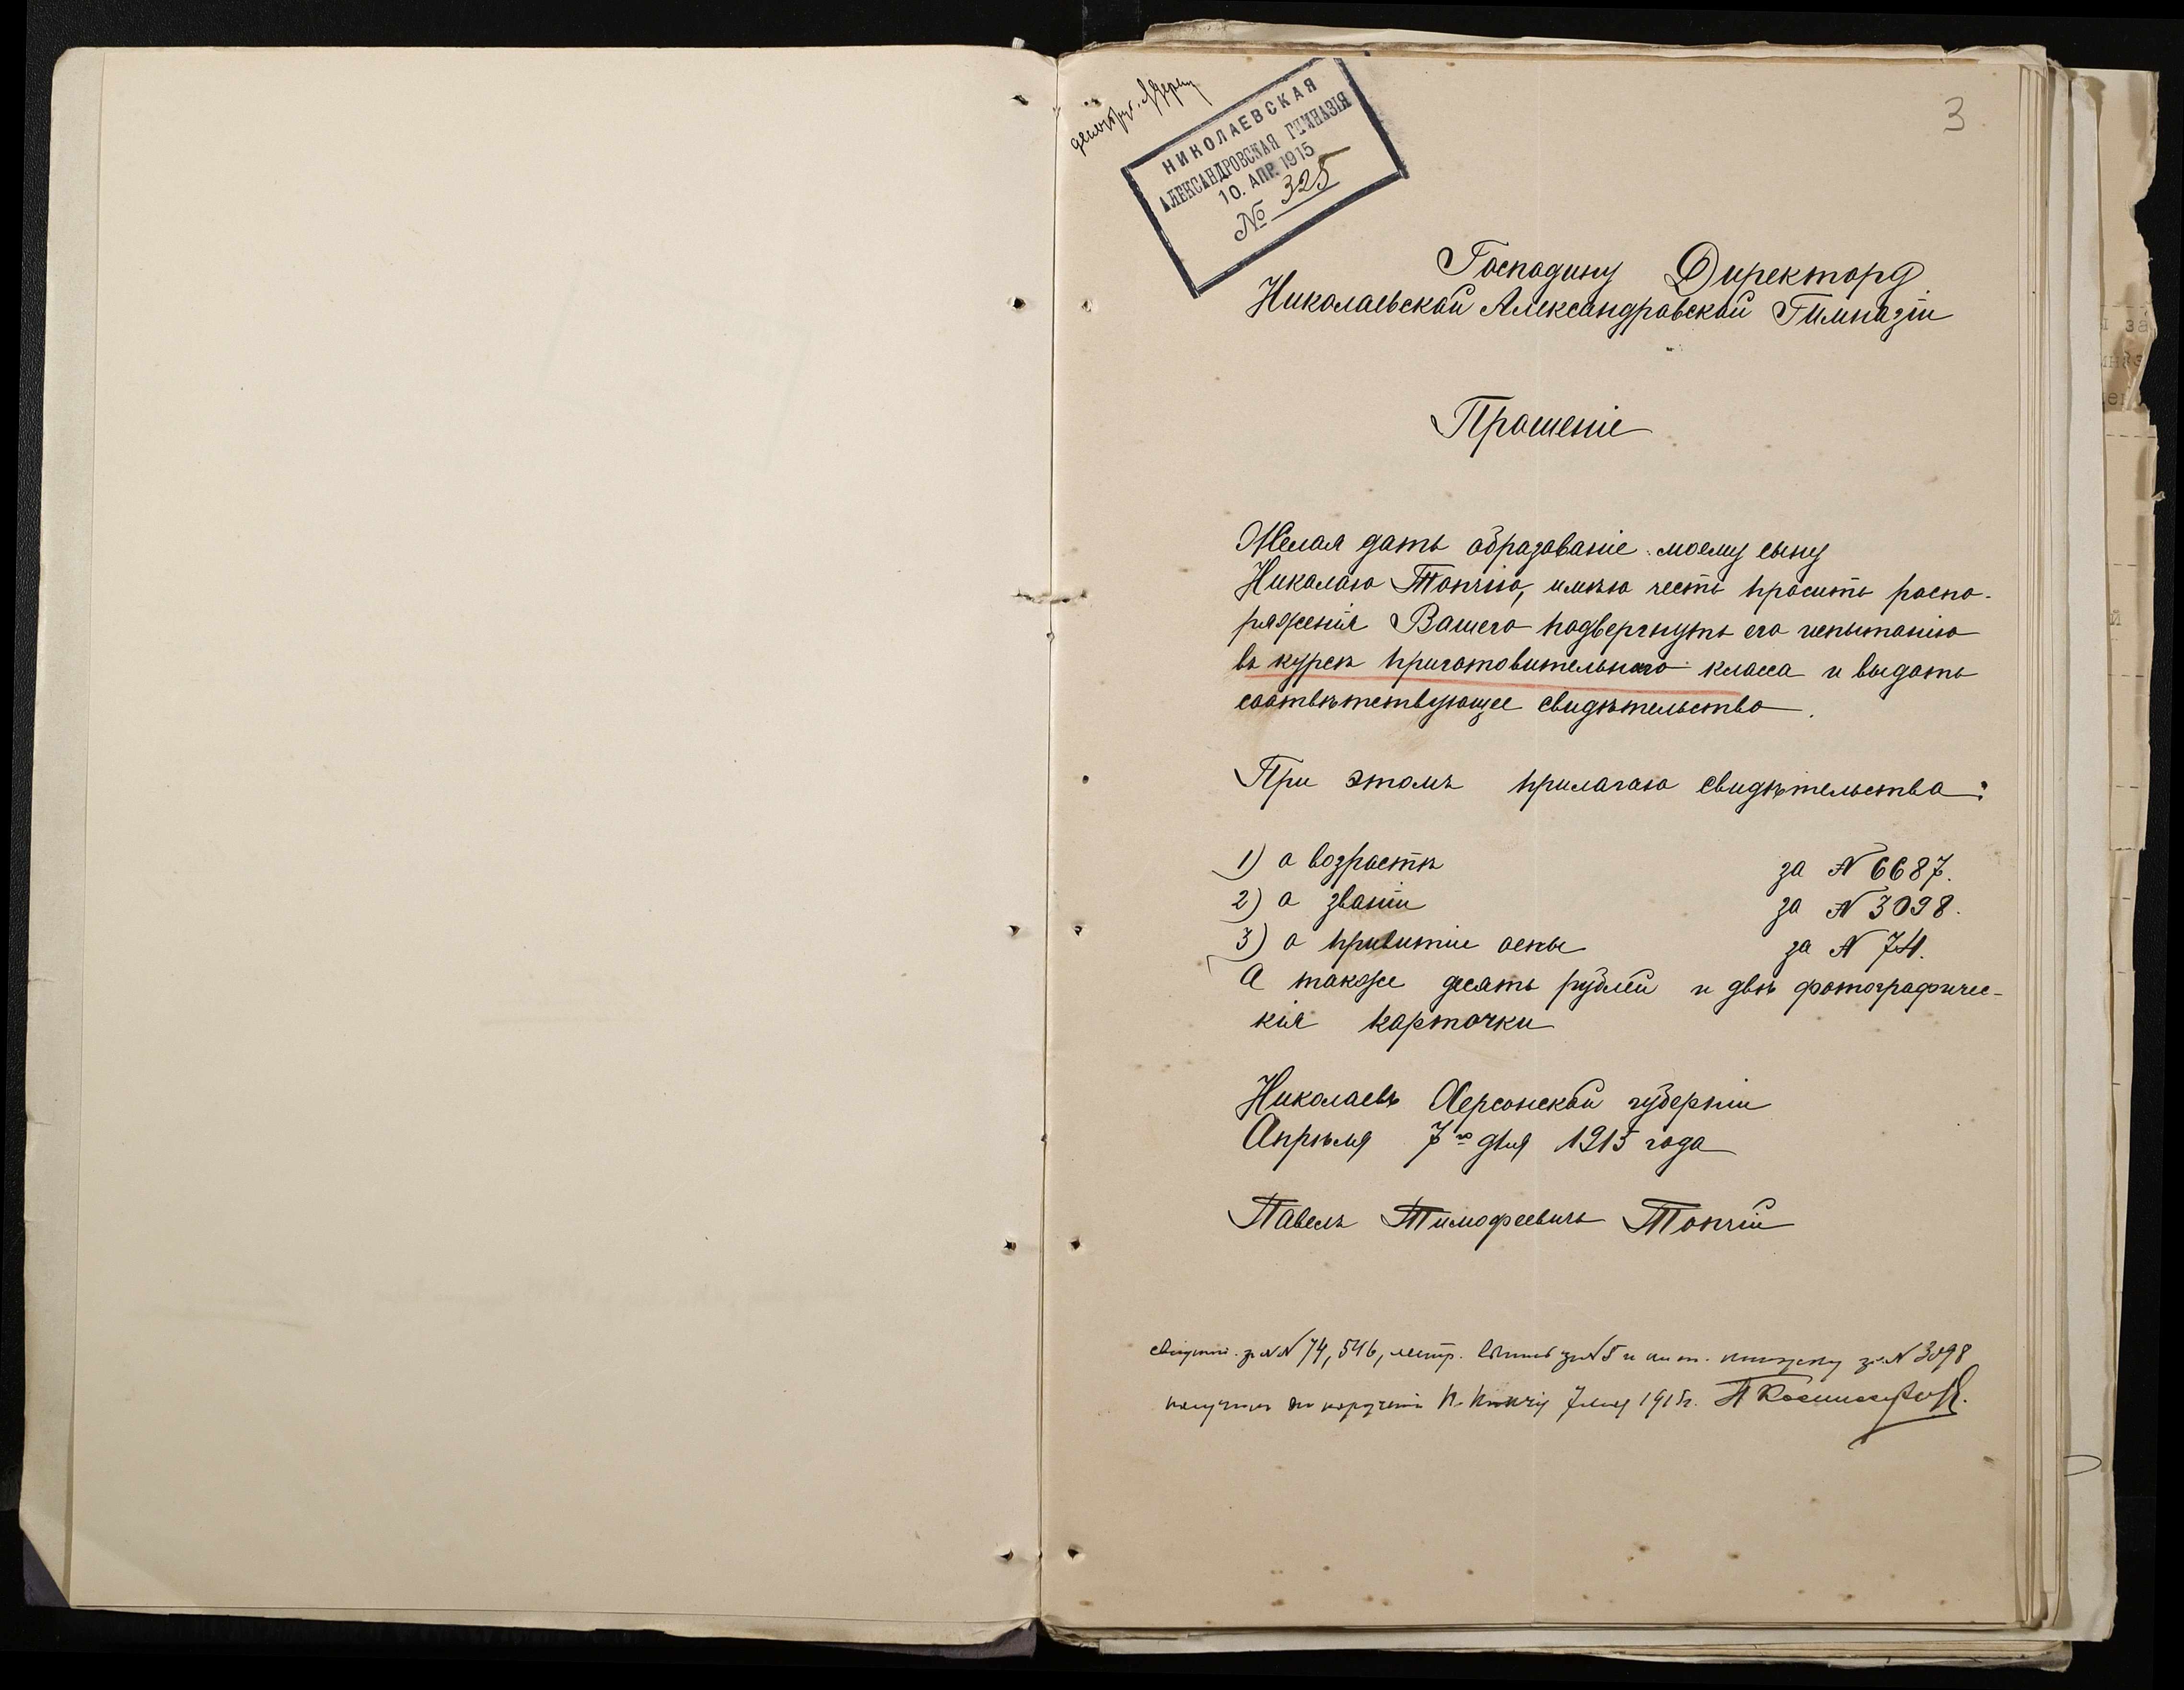 3
НИКОЛАЕВСКАЯ
АЛЕКСАНДРОВСКАЯ ГИМНАЗІЯ
10. АПР. 1915
№ 325
Господину Директору
Николаевской Александровской Гимназіи
Прошеніе
Желая дать образованіе моему сыну
Николаю Топчію, имѣю честь просить распо-
ряженія Вашего подвергнуть его испытанію
въ курсѣ приготовительнаго класса и выдать
соотвѣтствующее свидѣтельство.
При этомъ прилагаю свидѣтельства:
1) о возрастѣ за № 6687.
2) о званіи за № 3098.
3) о привитіи оспы за № 74.
А также десять рублей и двѣ фотографичес-
кія карточки
Николаевъ Херсонской губерніи
Апрѣля 7го дня 1915 года
Павелъ Тимофеевичъ Топчій
за №№ 74, 546, метр. за № 5 и книжку за № 3098
получилъ по порученію П. 1915 г.